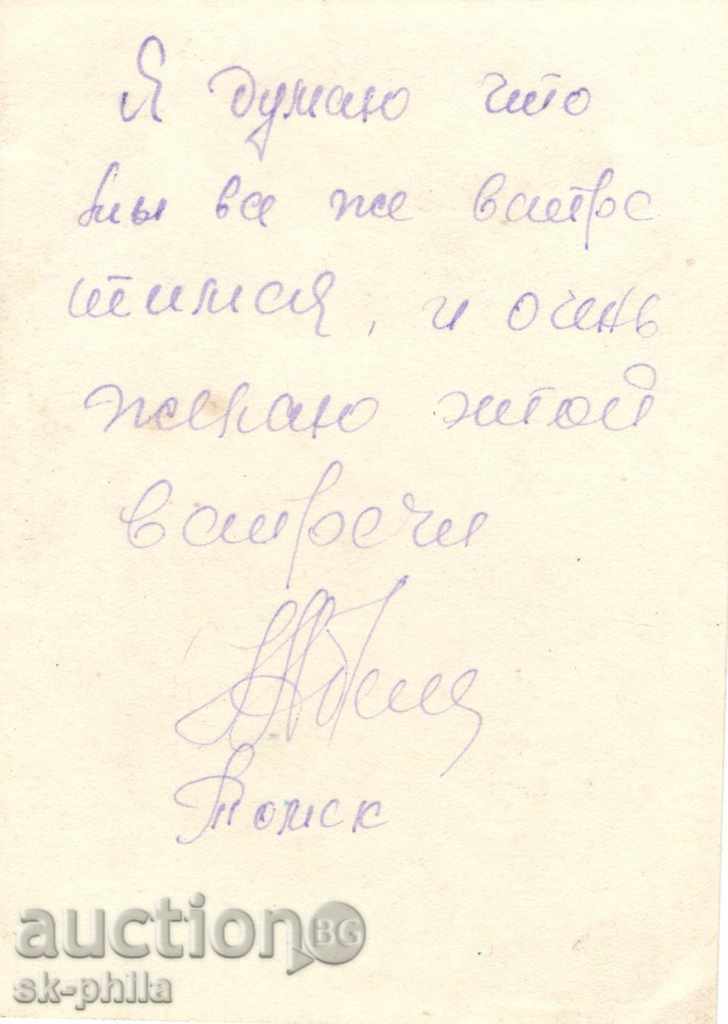 Я думаю что
мы все же встре
тимся, и очень
желаю этой
встречи
Томск
auction BG
sk-phila